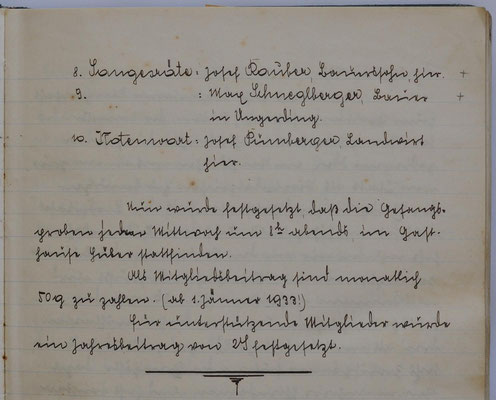 8. Sangesräte: Josef Rauber, Bauerssohn, hier. +
9. : Max Schneglberger, Bauer +
in Ungerding.
10. Notenwart: Josef Rümberger Landwirt
hier.
Nun wurde festgesetzt, daß die Gesangs-
proben jeden Mittwoch um 8h abends, im Gast-
hause Huber stattfinden.
Als Mitgliedsbeitrag sind monatlich
50g zu zahlen. (ab 1. Jänner 1933!)
Für unterstützende Mitglieder wurde
ein Jahresbeitrag von 2S festgesetzt.